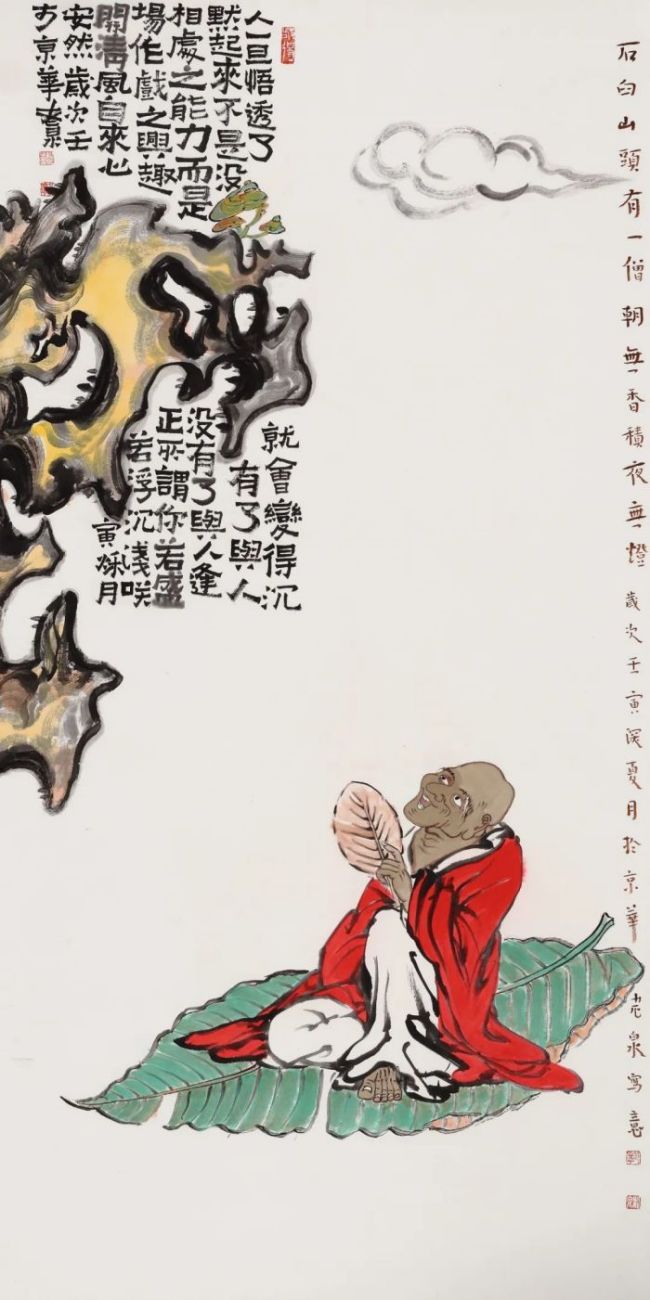 石臼山頭有一僧朝無香積夜無燈歲次壬寅深夏月於京華
泉寫意
人一旦悟透了就會變得沉
默起來不是没有了與人
相處之能力而是没有了與人逢
場作戲之興趣正所謂你若盛
開清風自來心若浮沉淺咲
安然歲次壬寅秌月
京華